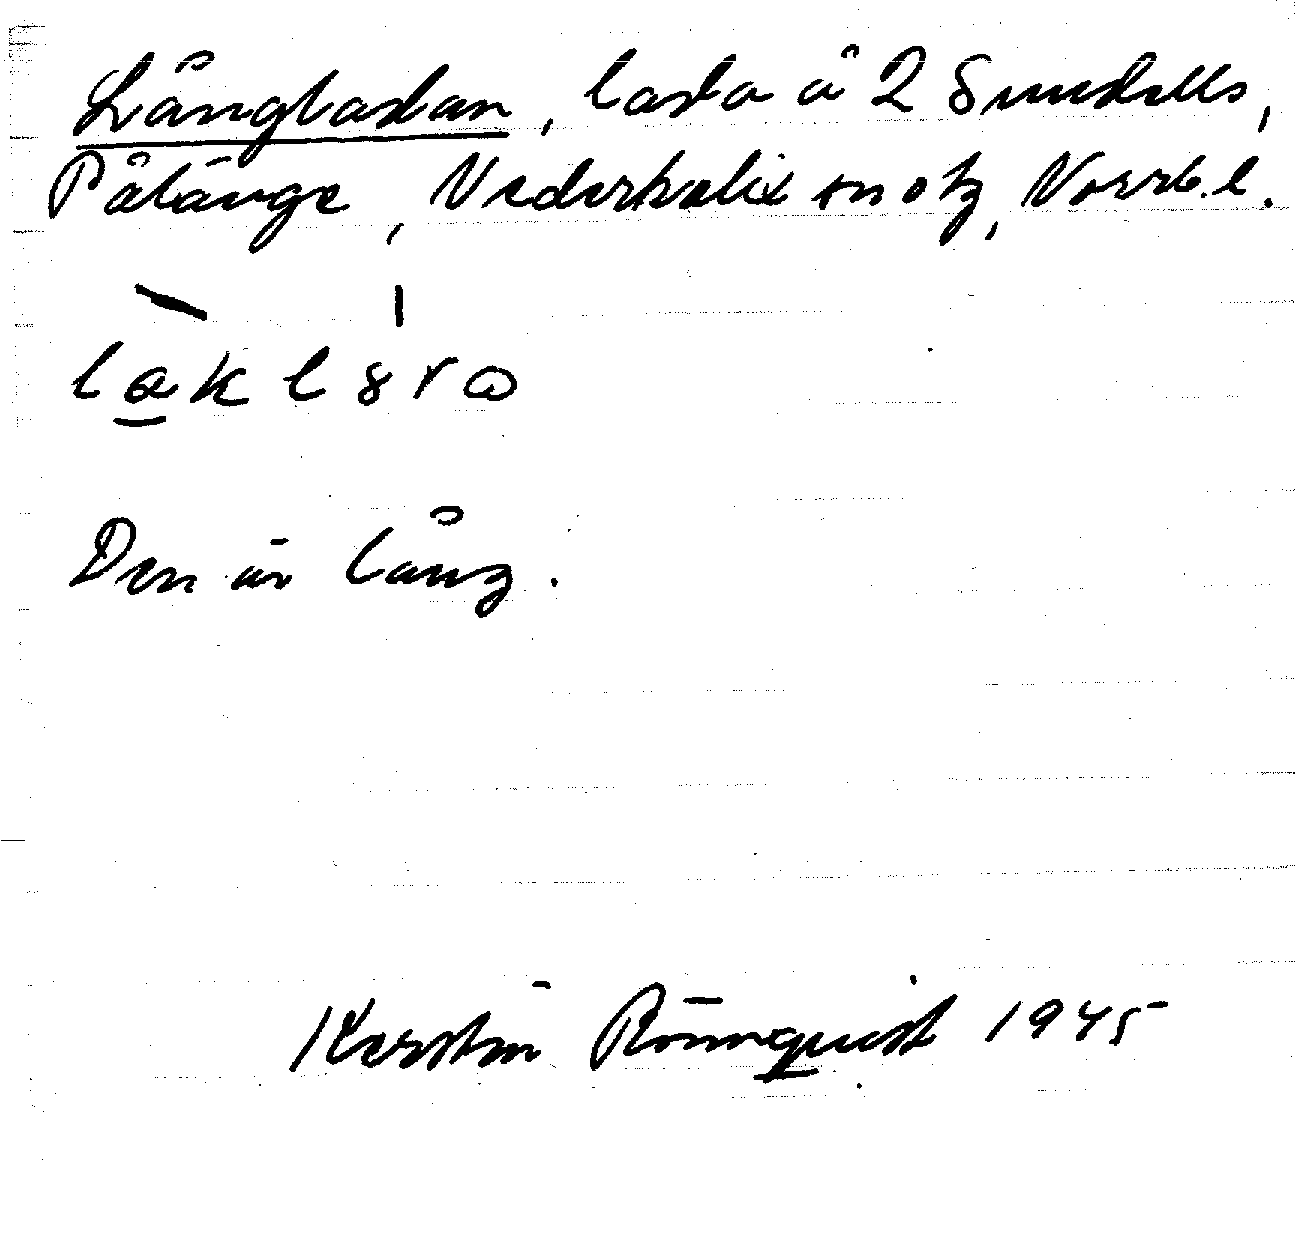 Långladan, lada å 2 Sundells,
Pålänge, Nederkalix sn o tg, Norrb. l.
Den är lång.
Kerstin Rönnquist 1945